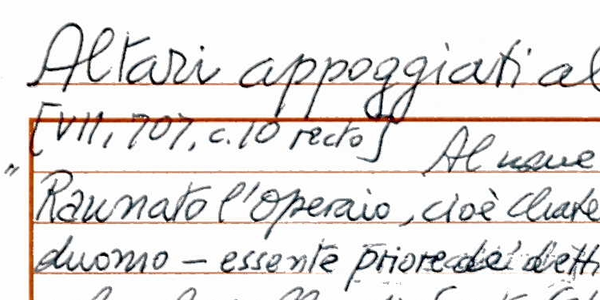 Altari appoggiati al
[VII, 707, c. 10 recto] Al nome
" Raunato l'Operaio, cioè
duomo — essente priore de' detti